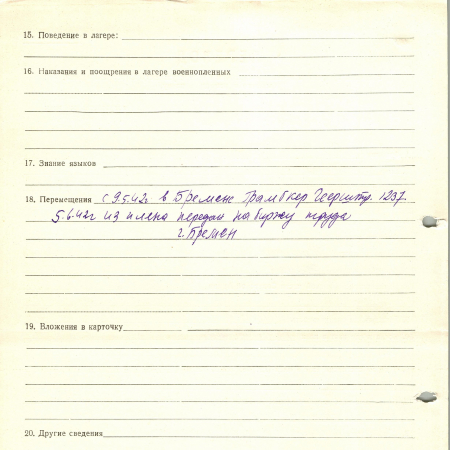 15. Поведение в лагере:
16. Наказания и поощрения в лагере военнопленных
17. Знание языков
18. Перемещения с 9.5.42г. в Бремене Грамбкер Геерштр. 1237.
5.6.42г из плена передан на биржу труда
г. Бремен
19. Вложения в карточку
20. Другие сведения